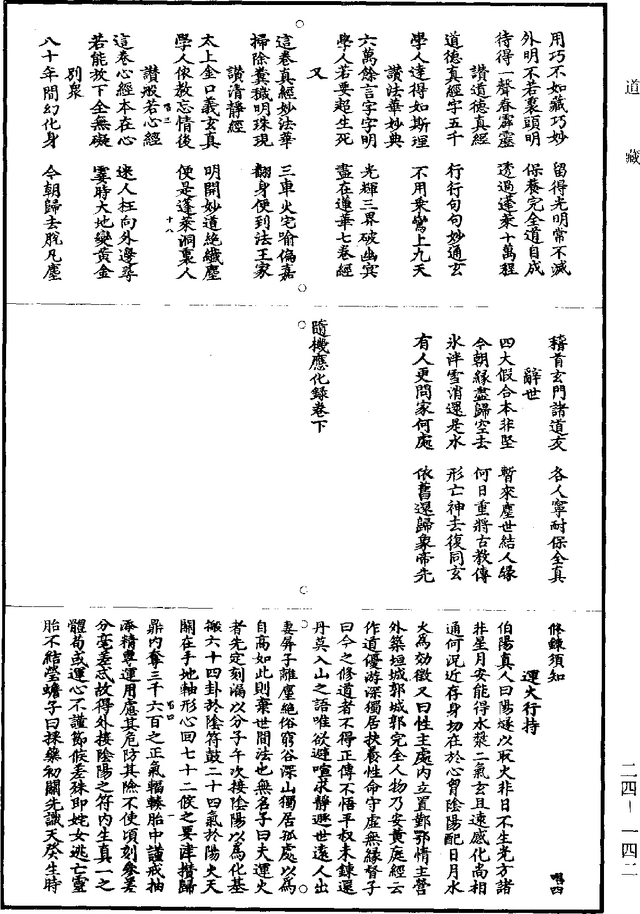 道藏
用巧不如藏巧妙　留得光明常不滅
外明不若裏頭明　保養完全道自成
待得一聲春霹靂　透過蓬萊十萬程
讚道德真經
道德真經字五千　行行句句妙通玄
學人達得如斯理　不用乘鸞上九天
讚法華妙典
六萬餘言字字明　光輝三界破幽冥
學人若要超生死　盡在蓮華七卷經
又
這卷真經妙法華　三車火宅喻偏嘉
掃除糞穢明珠現　翻身便到法王家
讚清靜經
太上金口義玄真　明開妙道絕纖塵
學人依教忘情後　便是蓬萊洞裏人
讚般若心經
這卷心經本在心　迷人枉向外邊尋
若能放下全無礙　霎時大地變黃金
別衆
八十年間幻化身　今朝歸去脫凡塵
稽首玄門諸道友　各人寧耐保全真
辭世
四大假合本非堅　暫來塵世結人緣
今朝緣盡歸空去　何日重將古教傳
氷泮雪消還是水　形亡神去復同玄
有人更問家何處　依舊還歸象帝先
隨機應化録卷下
修鍊須知
唱四
運火行持
伯陽真人曰陽燧以取火非日不生光方諸
非星月安能得水漿二氣玄且遠感化尚相
通何況近存身切在於心胷陰陽配日月水
火為効徵又曰性主處內立置鄞鄂情主營
外築垣城郭城郭完全人物乃安黃庭經云
作道優游深獨居扶養性命守虛無緣督子
曰今之修道者不得正傳不悟平叔未鍊還
丹莫入山之語唯欲避喧求靜遯世遠人出
妻屏子離塵絕俗窮谷深山獨居孤處以為
自高如此則棄世間法也無名子曰夫運火
者先定刻漏以分子午次接陰陽以為化基
搬六十四卦於陰符鼓二十四氣於陽火天
關在手地軸形心回七十二候之要津攢歸
鼎內奪三千六百之正氣輻輳胎中謹戒抽
添精專運用慮其危防其險不使頃刻參差
分毫差忒故得外接陰陽之符內生真一之
體苟或運心不謹節候差殊即姹女逃亡靈
胎不結瑩蟾子曰採藥初關先識天癸生時
二四－一四二